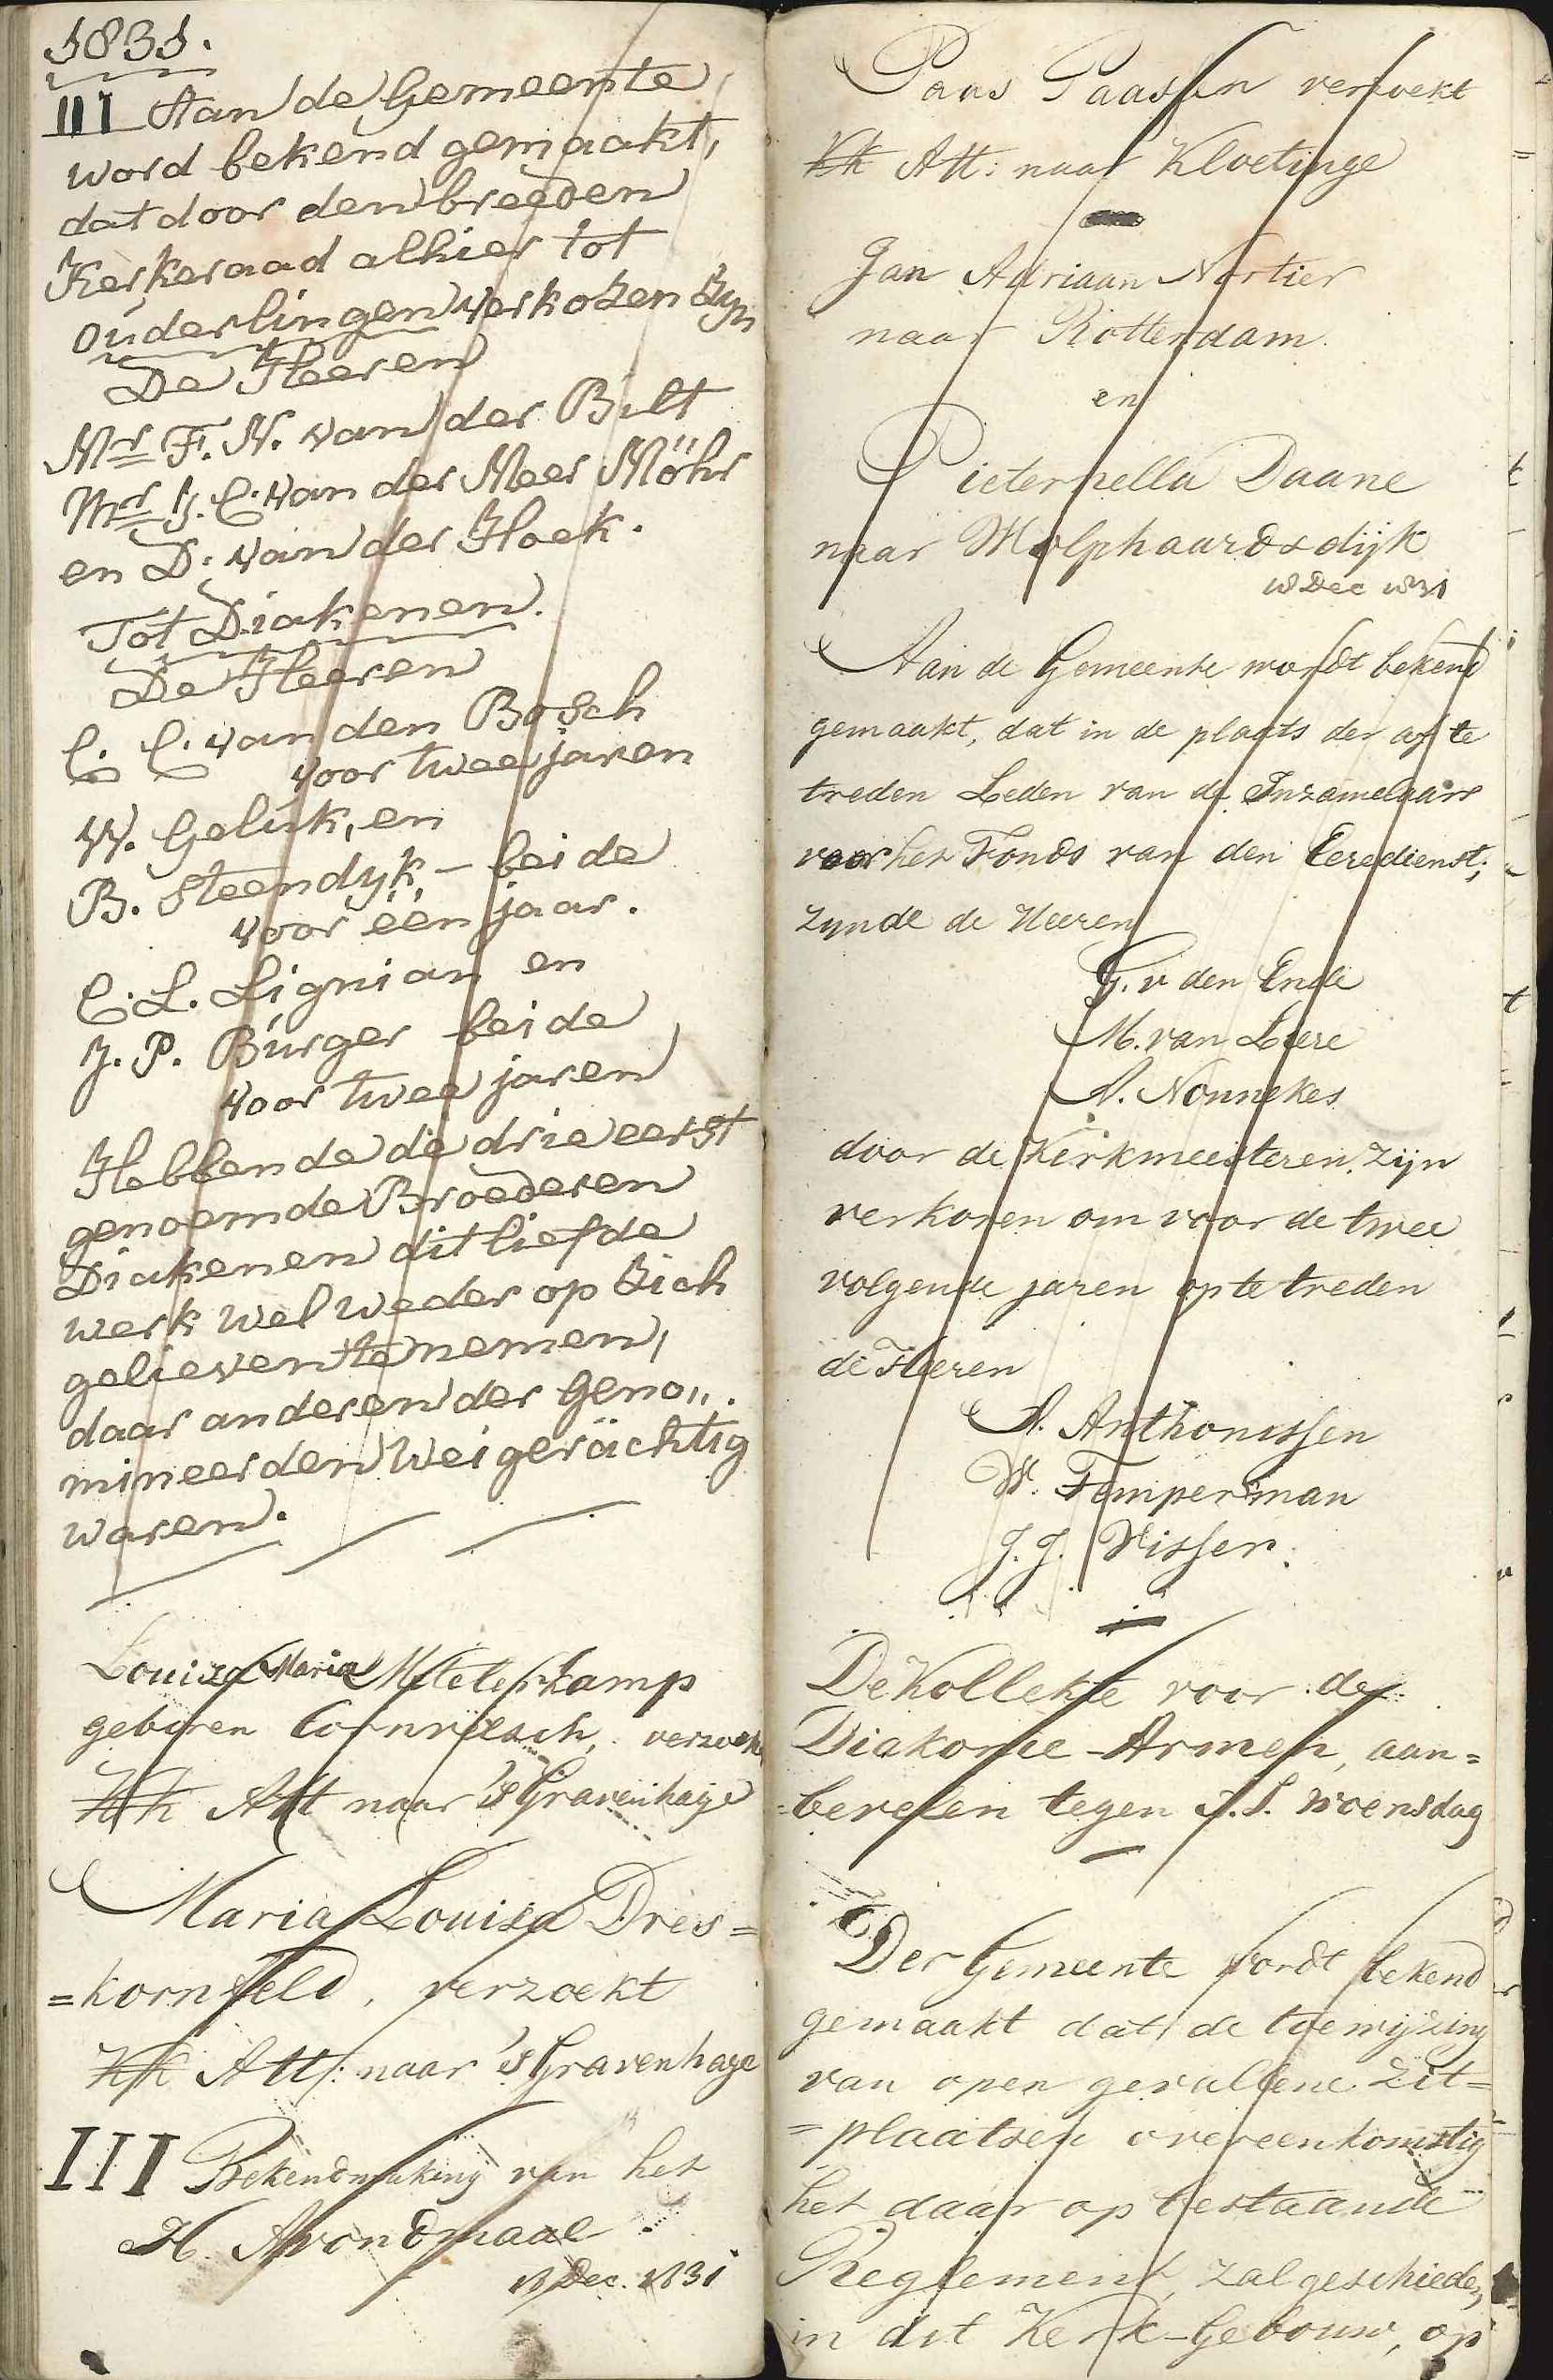 1831.
III Aan de Gemeente
word bekend gemaakt,
dat door den breeden
Kerkeraad alhier tot
ouderlingen verkozen zyn
De Heeren
Mr F. N. van der Bilt
Mr J. C. van der Meer Möhr
en D. van der Hoek.
Tot Diakenen.
De Heeren
C. C. van den Bosch
voor twee jaren
W. Geluk, en
B. Steendyk, – beide
voor één jaar.
C. L. Lignian en
J. P. Burger beide
voor twee jaren
Hebbende de drie eerst
genoemde Broederen
Diakenen dit liefde
werk wel weder op zich
gelieven te nemen,
daar anderen der Geno„.
mineerden weigerächtig
waren.
Louiza Maria Metelerkamp
geboren verzoekt
Kk Att naar 's Gravenhage
Maria Louisa Dres=
=kornfeld, verzoekt
Kk Att: naar 's Gravenhage
III Bekendmaking van het
H. Avondmaal
18 Dec. 1831
Paus Paassen verzoekt
Kk Att: naar Kloetinge
Jan Adriaan Nortier
naar Rotterdam.
en
Pieternella Daane
naar Wolphaardsdijk
18 Dec 1831
Aan de Gemeente wordt bekend
gemaakt, dat in de plaats der af te
treden Leden van de Inzamelaars
voor het Fonds van den Eeredienst;
zynde de Heeren
G. v den Ende
M. van Leere
A. Nonnekes
door de Kerkmeesteren zijn
verkoren om voor de twee
volgende jaren op te treden
de Heeren
A. Anthonissen
W. Temperman
J. J. Visser.
De Kollekte voor de
Diakonie-Armen, aan=
=bevelen tegen J.S. Woensdag
Der Gemeente wordt bekend
gemaakt dat de toewijzing
van open gevallene Zit=
=plaatsen overeenkomstig
het daar op bestaande
Reglement, zal geschieden,
in dit Kerk-Gebouw, op